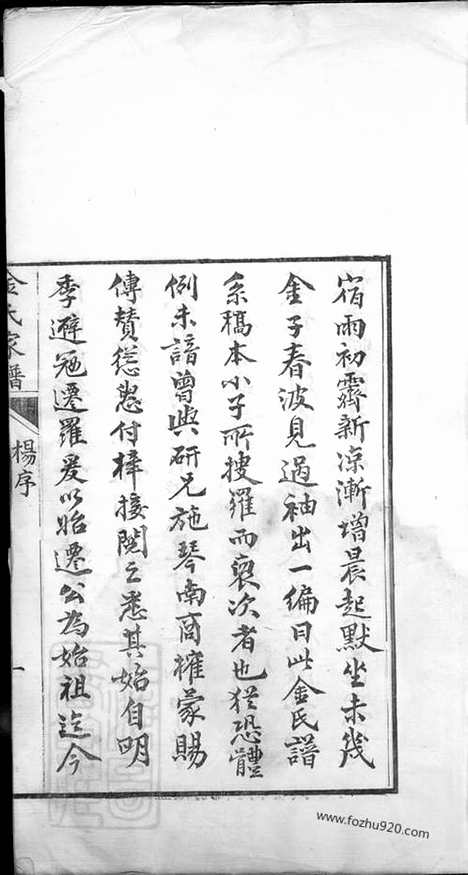 宿雨初霽新涼漸增晨起默坐未幾
金子春波見過袖出一編曰此金氏譜
系稿本小子所搜羅而裒次者也猶恐體
例未諳曾與研兄施琴南商榷蒙賜
傳贊慫恿付梓接閱之悉其始自明
季避冦遷羅爰以始遷公為始祖迄今
金氏家譜
楊序
一
www.fozhu920.com